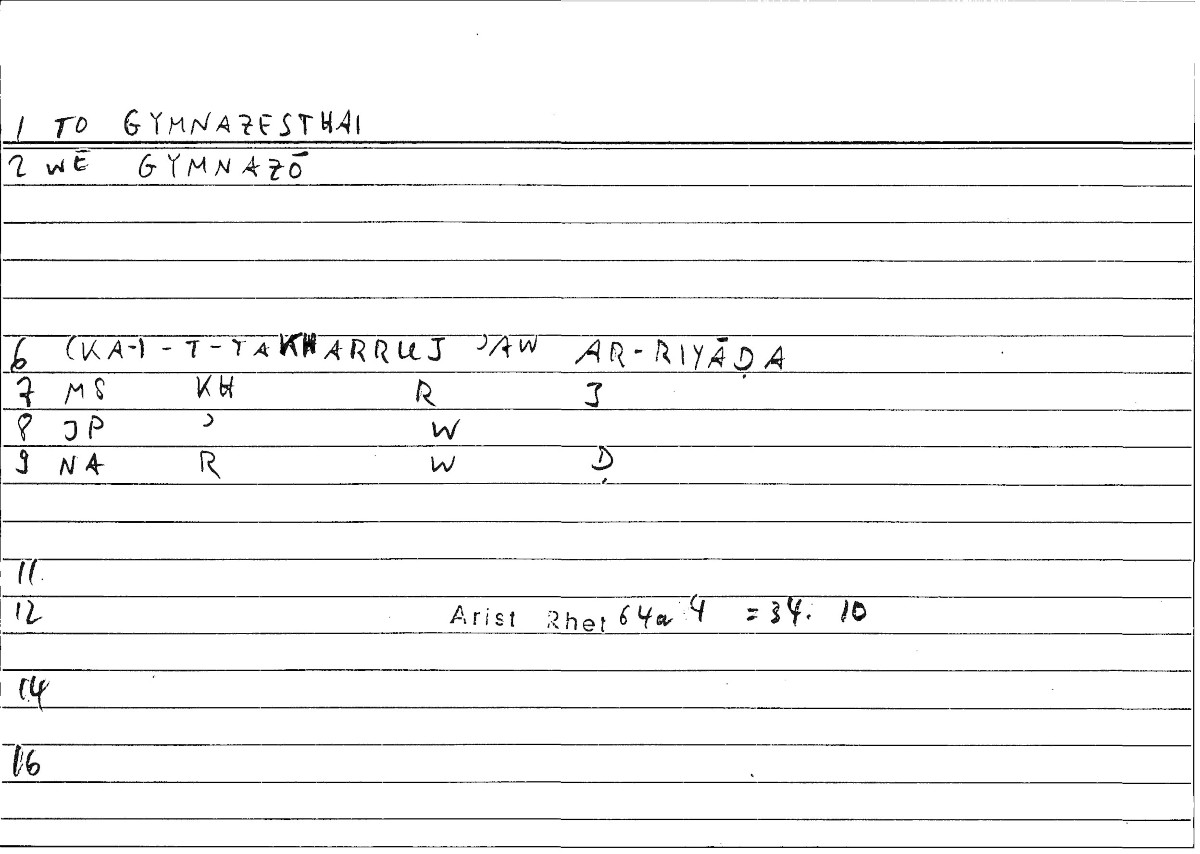 1 TO GYMNAZESTHAI
2 WĒ GYMNAZŌ
6 (KA-) - T - TAKHARRUJ ʾAW AR-RIYĀḌA
7 MS KH R J
8 JP ʾ W
9 NA R W Ḍ
11.
12 Arist Rhet 64a 4 = 34. 10
14
16